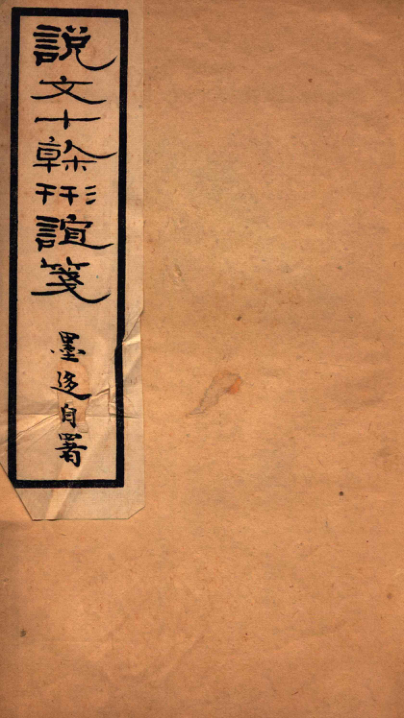 說文十榦形誼箋
墨迻自署